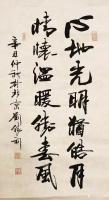 心地光明犹皓月
情怀温暖胜春风
辛丑仲秋于北京刘